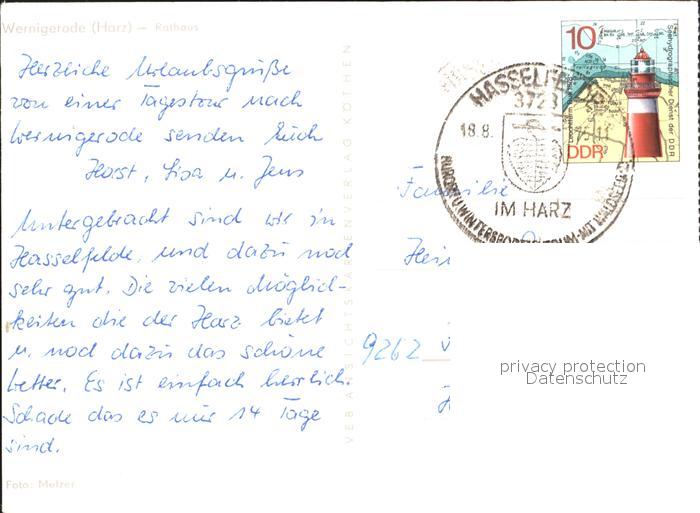 Wernigerode (Harz) – Rathaus
Herzliche Urlaubsgrüße
von einer Tagestour nach
Wernigerode senden Euch
Horst, Lisa u. Jens
Untergebracht sind wir in
Hasselfelde, und dazu noch
sehr gut. Die vielen Möglich-
keiten die der Harz bietet
u. noch dazu das schöne
Wetter. Es ist einfach herrlich.
Schade das es nur 14 Tage
sind.
Foto: Melzer
VEB ANSICHTSKARTENVERLAG KÖTHEN
HASSELFELDE
3723
18.8.
IM HARZ
10
Seehydrographischer Dienst der DDR
DDR
Familie
9262
privacy protection
Datenschutz